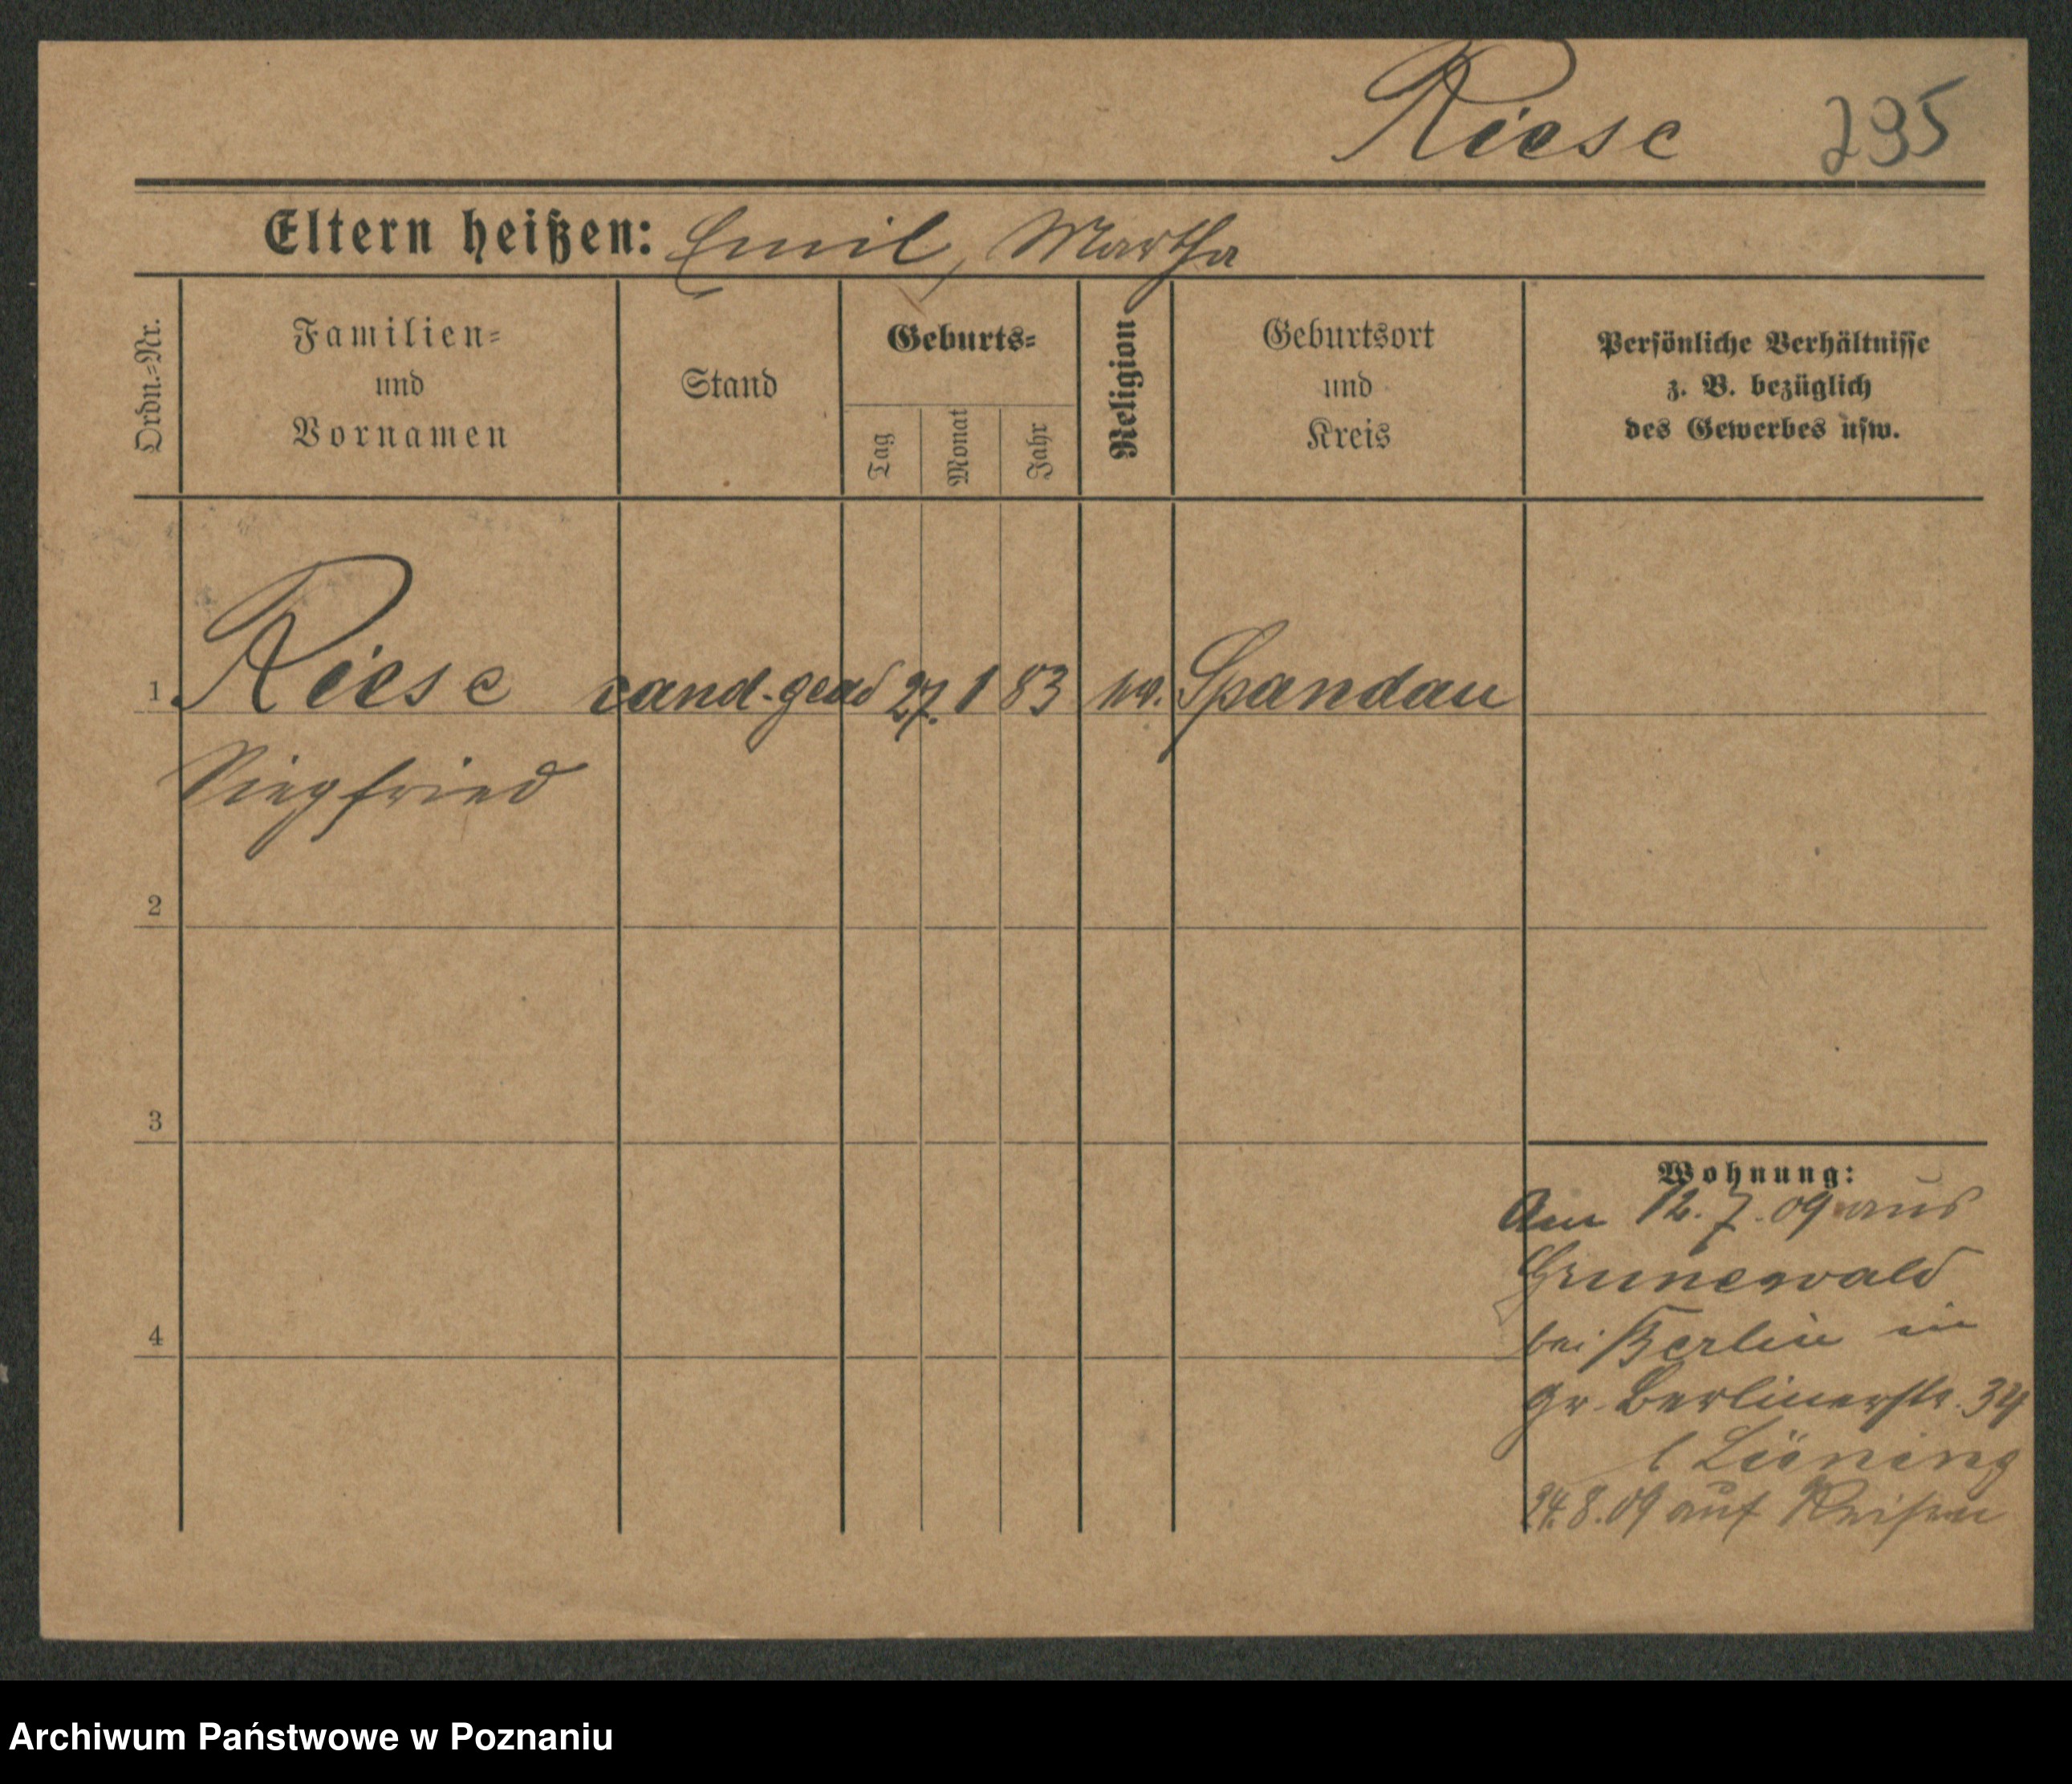 Riese 295
Eltern heißen: Emil, Martha
Ordn.=Nr.
Familien=
und
Vornamen
Stand
Geburts=
Tag
Monat
Jahr
Religion
Geburtsort
und
Kreis
Persönliche Verhältnisse
z. B. bezüglich
des Gewerbes usw.
1 Riese cand. geod 27. 1 83 ev. Spandau
Siegfried
2
3
4
Wohnung:
Am 12. 7. 09 aus
Grunewald
bei Berlin in
gr. Berlinerstr. 34
b Lüning
24. 8. 09 auf Reisen
Archiwum Państwowe w Poznaniu